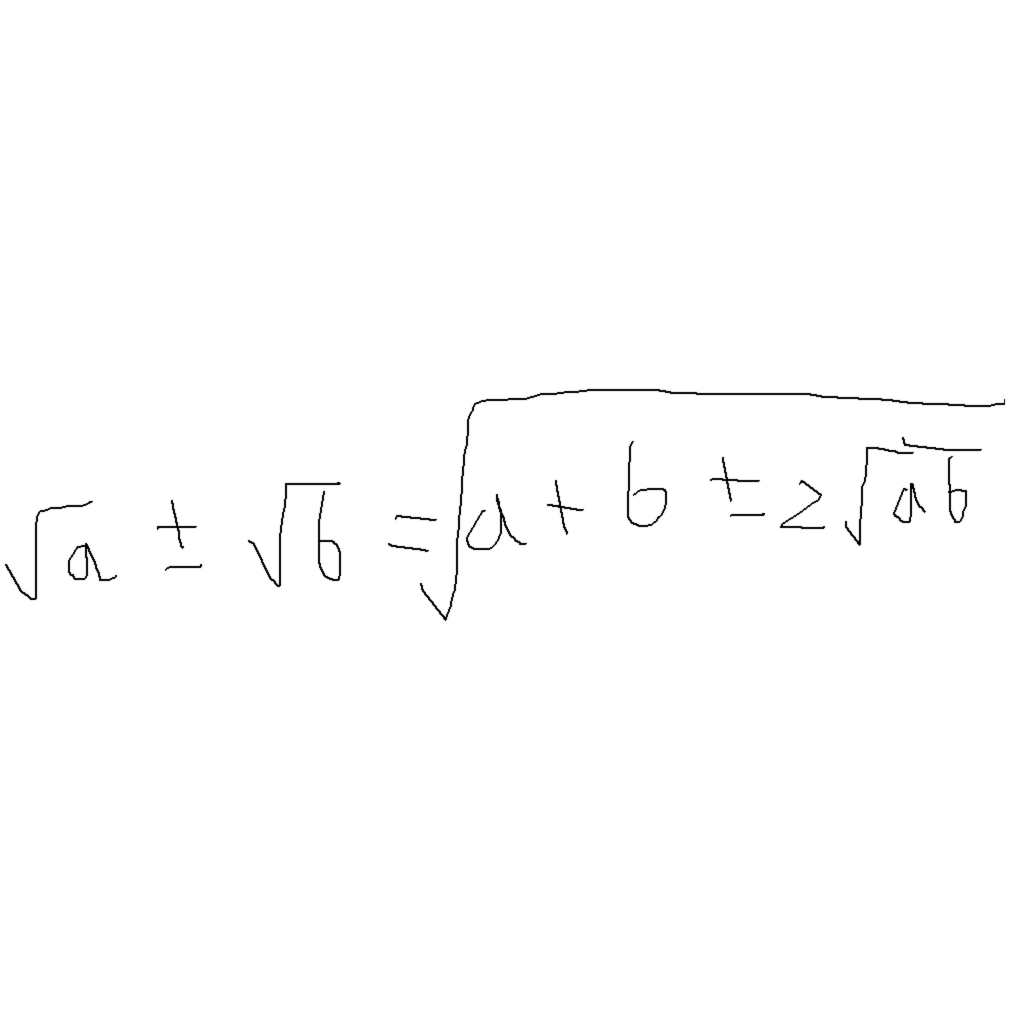 √a ± √b = √(a + b ± 2√(ab))